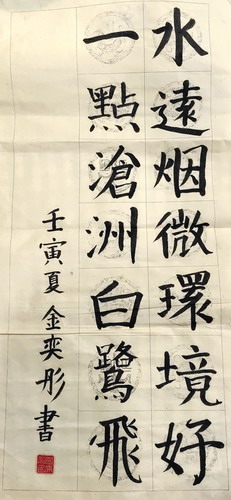 水遠烟微環境好
一點滄洲白鷺飛
壬寅夏金奕彤書